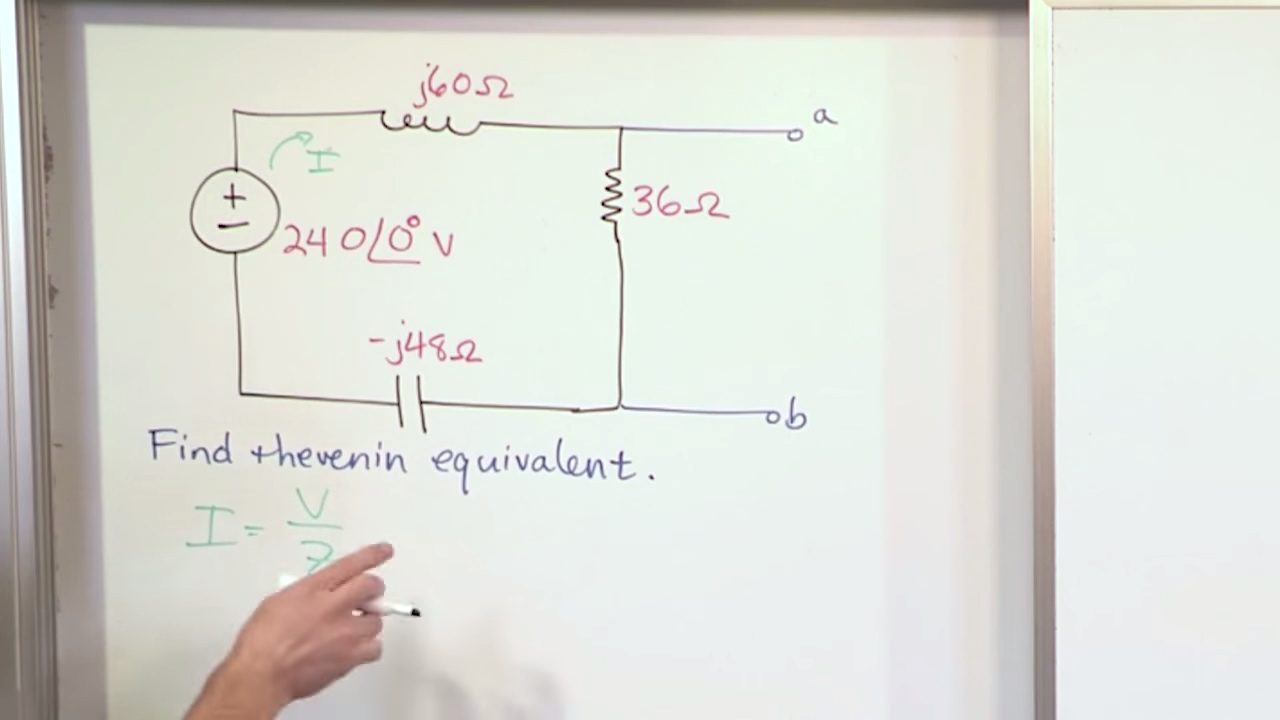 j60Ω
a
I
+
36Ω
−
240∠0° V
-j48Ω
b
Find thevenin equivalent.
I = V
Z